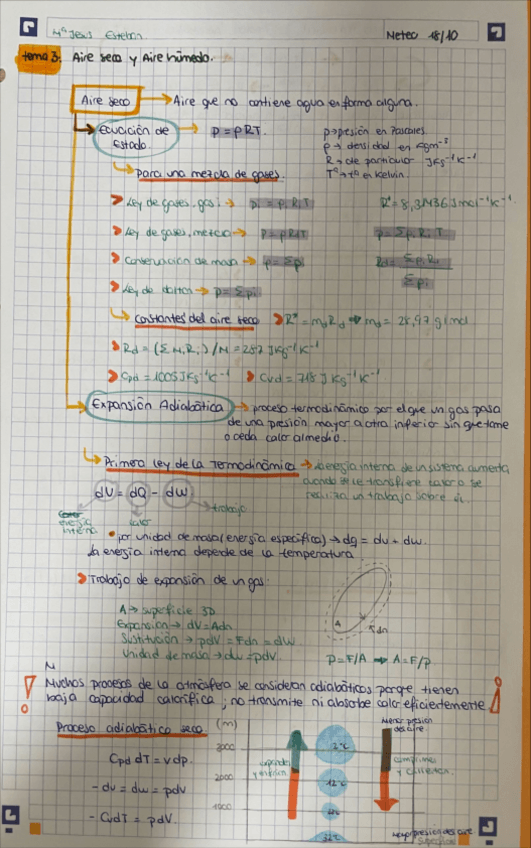 Mª Jesús Esteban.
Meteo 18/10
tema 3. Aire seco y Aire húmedo.
Aire seco → Aire que no contiene agua en forma alguna.
Ecuación de Estado. → p = ρRT.
p → presión en Pascales.
ρ → densidad en kgm⁻³
R → cte particular JKg⁻¹K⁻¹
Tª → tª en Kelvin.
Para una mezcla de gases.
Ley de gases, gas i → pᵢ = ρᵢRᵢT
R* = 8,31436 Jmol⁻¹K⁻¹
Ley de gases, mezcla → p = ρRdT
p = Σρᵢ Rᵢ T
Conservación de masa → ρ = Σρᵢ
Rd = Σρᵢ Rᵢ / Σρᵢ
Ley de dalton → p = Σpᵢ
Constantes del aire seco
R* = md Rd → md = 28,97 g/mol
Rd = (Σ Mᵢ Rᵢ) / M = 287 JKg⁻¹K⁻¹
Cpd = 1005 JKg⁻¹K⁻¹
Cvd = 718 J Kg⁻¹K⁻¹
Expansión Adiabática → proceso termodinámico por el que un gas pasa
de una presión mayor a otra inferior sin que tome
o ceda calor al medio.
Primera Ley de la Termodinámica → La energía interna de un sistema aumenta
cuando se le transfiere calor o se
realiza un trabajo sobre él.
dU = dQ - dW
trabajo
calor
energía interna
por unidad de masa (energía específica) → dq = du + dw.
La energía interna depende de la temperatura.
Trabajo de expansión de un gas:
A → superficie 3D
Expansión → dV = Adn
Sustitución → pdV = Fdn = dW
Unidad de masa → dw = pdv.
A
dn
P = F/A → A = F/p
! Muchos procesos de la atmósfera se consideran adiabáticos porque tienen
baja capacidad calorífica; no transmite ni absorbe calor eficientemente !
Proceso adiabático seco
(m)
Menor presión del aire
3000
2°C
Cpd dT = vdp.
expande y enfría
comprime y calienta
2000
12°C
- du = dw = pdv
1000
- CvdT = pdV.
32°C
Mayor presión del aire
Superficie